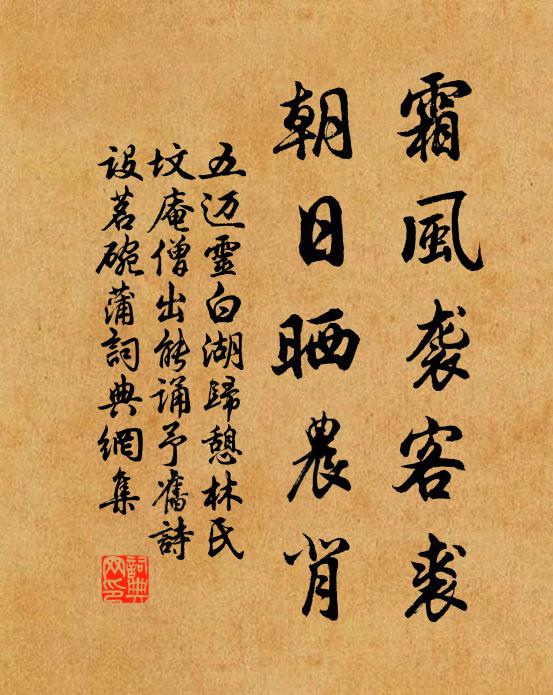 霜風袭客裘
朝日晒農背
五迈靈白湖歸憩林氏
坟庵僧出能誦予舊詩
设茗碗蒲詞典網集
詞典网印